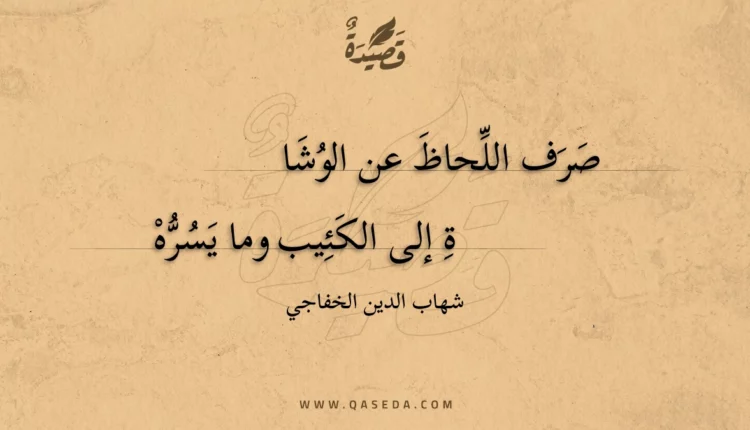 قَصِيدَةٌ
صَرَف اللِّحاظَ عن الوُشَا
ةِ إلى الكَئِيب وما يَسُرُّهْ
شهاب الدين الخفاجي
WWW.QASEDA.COM